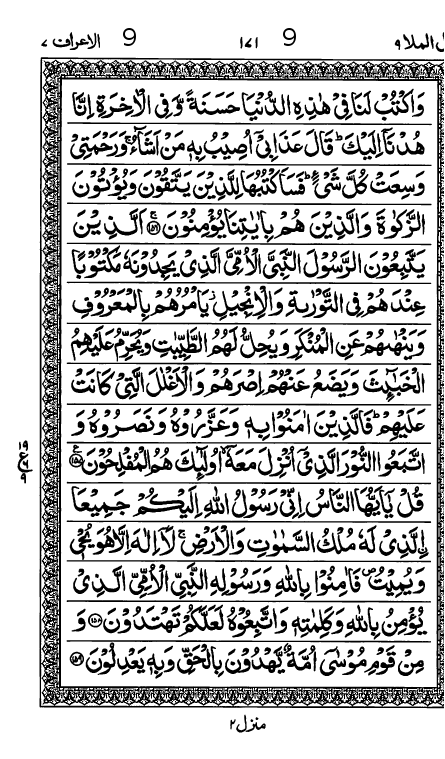 ل الملا ۹ 9 ۱۷۱ 9 الاعراف ۷
وَاكْتُبْ لَنَا فِیْ هٰذِهِ الدُّنْیَا حَسَنَةً وَّفِی الْاٰخِرَةِ اِنَّا
هُدْنَاۤ اِلَیْكَ ؕ قَالَ عَذَابِیْۤ اُصِیْبُ بِهٖ مَنْ اَشَآءُ ۚ وَرَحْمَتِیْ
وَسِعَتْ كُلَّ شَیْءٍ ؕ فَسَاَكْتُبُهَا لِلَّذِیْنَ یَتَّقُوْنَ وَیُؤْتُوْنَ
الزَّكٰوةَ وَالَّذِیْنَ هُمْ بِاٰیٰتِنَا یُؤْمِنُوْنَ ۚ﴿۱۵۶﴾ اَلَّذِیْنَ
یَتَّبِعُوْنَ الرَّسُوْلَ النَّبِیَّ الْاُمِّیَّ الَّذِیْ یَجِدُوْنَهٗ مَكْتُوْبًا
عِنْدَهُمْ فِی التَّوْرٰىةِ وَالْاِنْجِیْلِ ؗ یَاْمُرُهُمْ بِالْمَعْرُوْفِ
وَیَنْهٰىهُمْ عَنِ الْمُنْكَرِ وَیُحِلُّ لَهُمُ الطَّیِّبٰتِ وَیُحَرِّمُ عَلَیْهِمُ
الْخَبٰٓئِثَ وَیَضَعُ عَنْهُمْ اِصْرَهُمْ وَالْاَغْلٰلَ الَّتِیْ كَانَتْ
عَلَیْهِمْ ؕ فَالَّذِیْنَ اٰمَنُوْا بِهٖ وَعَزَّرُوْهُ وَنَصَرُوْهُ وَ
اتَّبَعُوا النُّوْرَ الَّذِیْۤ اُنْزِلَ مَعَهٗۤ ۙ اُولٰٓئِكَ هُمُ الْمُفْلِحُوْنَ ﴿۱۵۷﴾ ع
قُلْ یٰۤاَیُّهَا النَّاسُ اِنِّیْ رَسُوْلُ اللّٰهِ اِلَیْكُمْ جَمِیْعَا
ِ۟الَّذِیْ لَهٗ مُلْكُ السَّمٰوٰتِ وَالْاَرْضِ ۚ لَاۤ اِلٰهَ اِلَّا هُوَ یُحْیٖ
وَیُمِیْتُ ۪ فَاٰمِنُوْا بِاللّٰهِ وَرَسُوْلِهِ النَّبِیِّ الْاُمِّیِّ الَّذِیْ
یُؤْمِنُ بِاللّٰهِ وَكَلِمٰتِهٖ وَاتَّبِعُوْهُ لَعَلَّكُمْ تَهْتَدُوْنَ ﴿۱۵۸﴾ وَ
مِنْ قَوْمِ مُوْسٰۤی اُمَّةٌ یَّهْدُوْنَ بِالْحَقِّ وَبِهٖ یَعْدِلُوْنَ ﴿۱۵۹﴾
منزل ۲